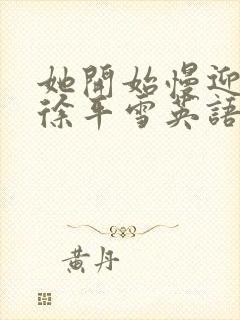 她開始慢迎
徐平雪英語
黃丹